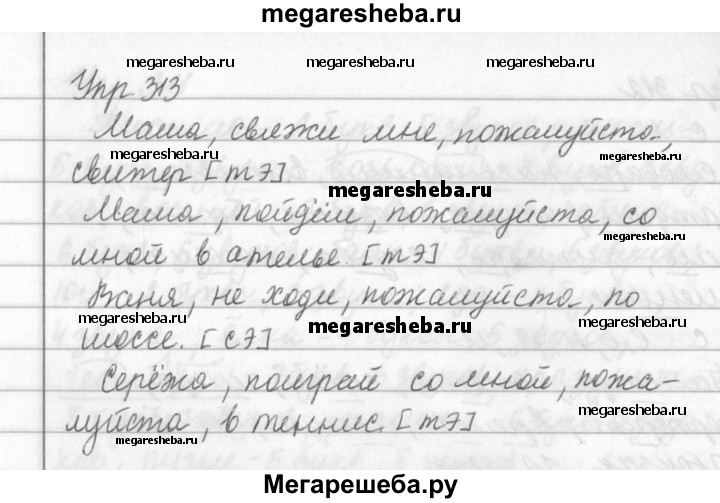 megaresheba.ru
megaresheba.ru megaresheba.ru megaresheba.ru
Упр 313
Мама, свяжи мне, пожалуйста,
megaresheba.ru megaresheba.ru
свитер [тэ]
megaresheba.ru
Мама, пойдём, пожалуйста, со
megaresheba.ru megaresheba.ru
мной в ателье. [тэ]
Ваня, не ходи, пожалуйста, по
megaresheba.ru megaresheba.ru megaresheba.ru
шоссе. [сэ]
Серёжа, поиграй со мной, пожа-
луйста, в теннис. [тэ]
megaresheba.ru megaresheba.ru
Мегарешеба.ру